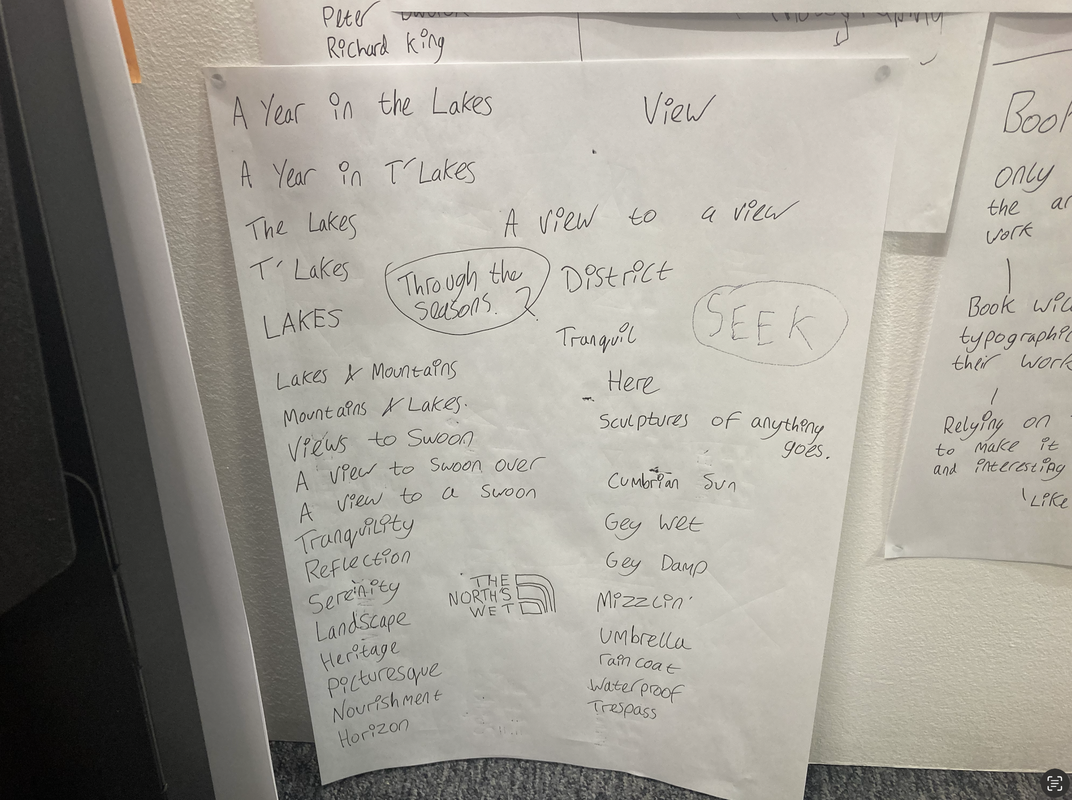 Peter
Richard King
A Year in the Lakes
A Year in T' Lakes
The Lakes
T' Lakes
LAKES
Through the
seasons. ?
Lakes & Mountains
Mountains & Lakes.
Views to Swoon
A View to Swoon over
A View to a Swoon
Tranquility
Reflection
Serenity
Landscape
Heritage
Picturesque
Nourishment
Horizon
THE
NORTH'S
WET
View
A view to a view
District
SEEK
Tranquil
Here
Sculptures of anything
goes.
Cumbrian Sun
Gey Wet
Gey Damp
Mizzlin'
Umbrella
raincoat
Waterproof
Trespass
only
the
work
Book
typographic
their work
Relying on
to make it
and interesting
Like